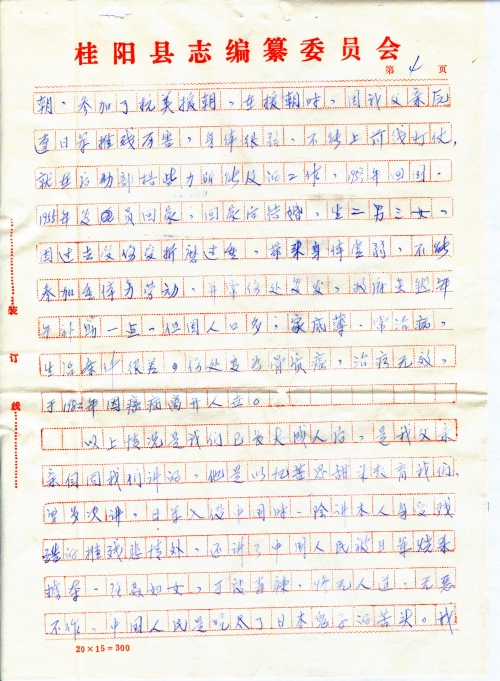 桂阳县志编纂委员会
第 4 页
朝,参加了抗美援朝。在援朝时,因我父亲反
遭日军摧残历害,身体很弱,不能上前线打仗,
就在后勤部搞些力所能及的工作,1953年回国。
1955年复员回家,回家后结婚,生二男三女,
因过去受伤受折磨过重,带来身体虚弱,不能
参加重体力劳动,并常伤处复发,政府虽然每
年补助一点,但因人口多,家底薄,常治病,
生活条件很差。伤处变为骨质癌,治疗无效,
于1982年因癌病离开人世。
以上情况是我们已长大成人后,是我父亲
亲口同我们讲的,他是以忆苦思甜来教育我们,
曾多次讲,日军入侵中国时,除讲本人身受残
的摧残悲情外,还讲了中国人民被日军烧杀
掳夺,强奸妇女,手段毒辣,惨无人道,无恶
不作,中国人民是吃尽了日本鬼子的苦头。我
装
订
线
20×15=300